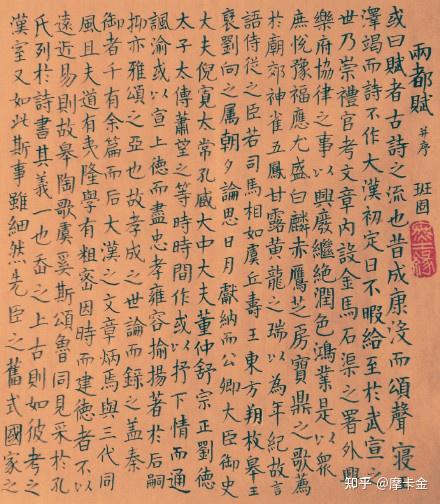 兩都賦 并序 班固
或曰賦者古詩之流也昔成康沒而頌聲寢
澤竭而詩不作大漢初定日不暇給至於武宣之
世乃崇禮官考文章內設金馬石渠之署外興
樂府協律之事以興廢繼絕潤色鴻業是以眾
庶悅豫福應尤盛白麟赤鴈芝房寶鼎之歌薦
於廟郊神雀五鳳甘露黃龍之瑞以為年紀故言
語侍從之臣若司馬相如虞丘壽王東方朔枚皋王
褒劉向之属朝夕論思日月獻納而公卿大臣御史
大夫倪寬太常孔臧大中大夫董仲舒宗正劉德
太子太傅蕭望之等時時間作或以抒下情而通
諷諭或以宣上德而盡忠孝雍容揄揚著於后嗣
抑亦雅頌之亞也故孝成之世論而錄之蓋奏
御者千有余篇而后大漢之文章炳焉與三代同
風且夫道有夷隆學有粗密因時而建德者不以
遠近易則故皋陶歌虞奚斯頌魯同見采於孔
氏列於詩書其義一也之上古則如彼考之
漢室又如此斯事雖細然先臣之舊式國家之
知乎 @摩卡金